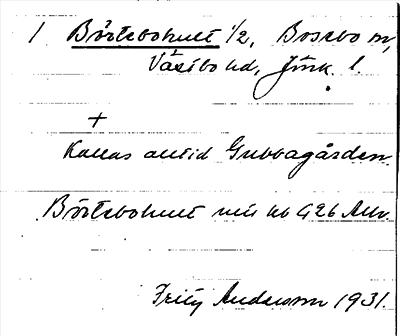 1 Börtebohult 1/2, Bosebo sn,
Västbo hd, Jönk. l.
+
Kallas alltid Gubbagården.
Börtebohult
Fritz Andersson 1931.